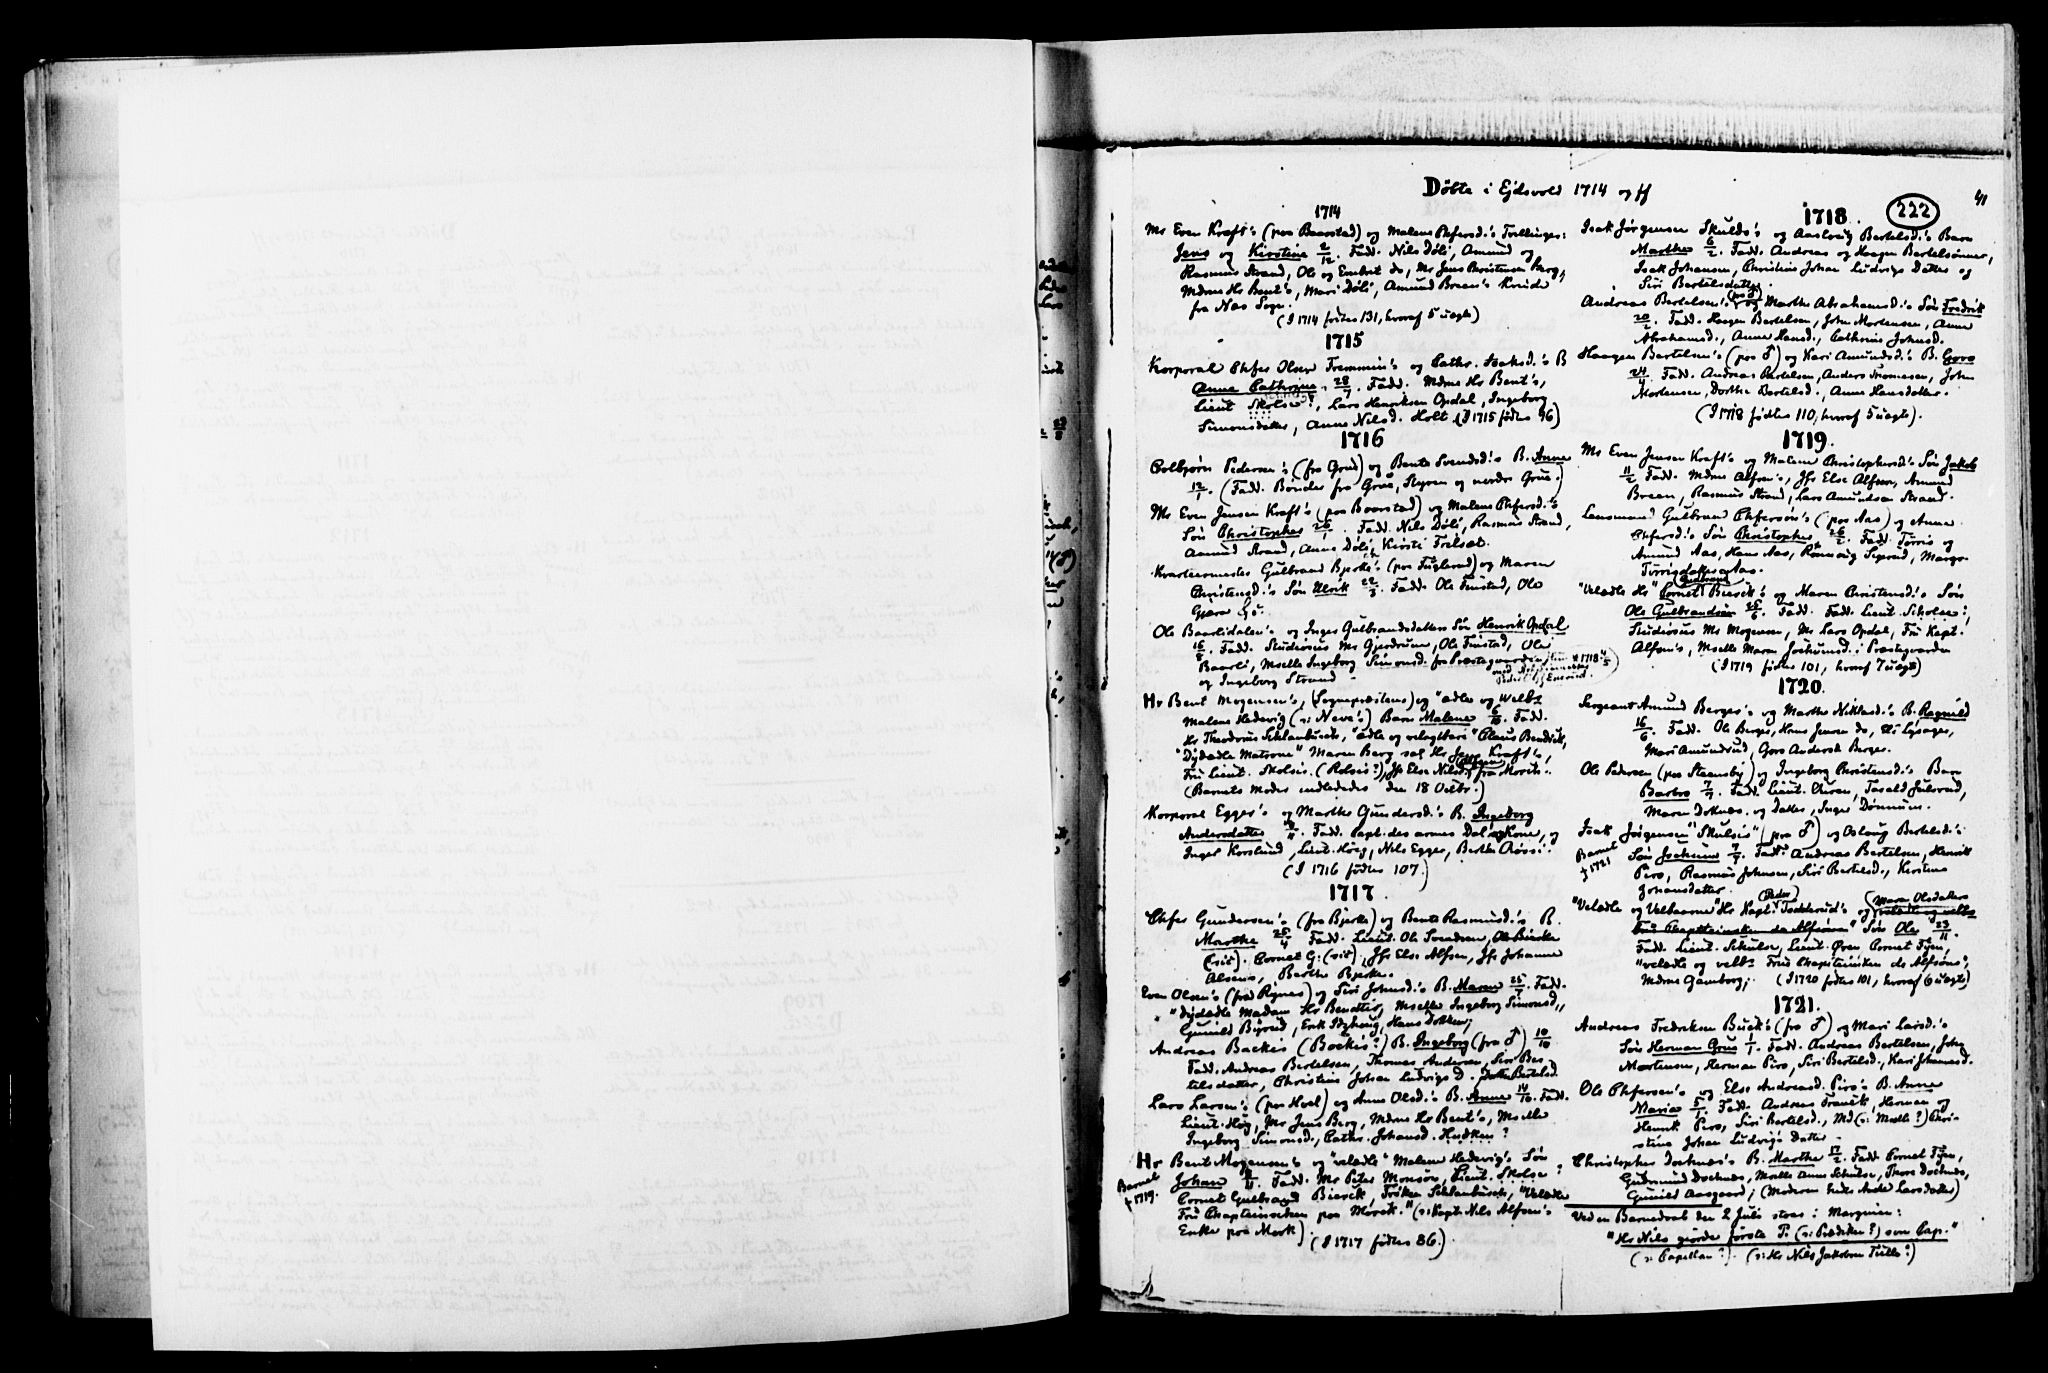 Döbte i Ejdsvold 1714 og ff
41
222
1714
Mr Even Kraft's (paa Baarstad) og Malene Chfersd.'s Tvillinger:
Jens og Kirstine 2/12. Fadd. Nils Döli, Amund og
Rasmus Strand, Ole og Embret do, Mr Jens Christensen Berg,
Mdme Hr Bent's, Mari Döli, Amund Breen's Kvinde
fra Næs Sogn.
(I 1714 födtes 131, hvoraf 5 uægte)
1715
Korporal Chfer Olsen Tremmin's og Cathr. Isaksd.'s B
Anne Cathrine 28/7. Fadd. Mdme Hr Bent's,
Lieut Skolse?, Lars Henriksen Opdal, Ingeborg
Simonsdatter, Anne Nilsd. Holt (I 1715 födtes 96)
1716
Colbjörn Pedersen's (fra Grue) og Bente Svendsd.'s B. Anne
12/1. (Fadd. Bönder fra Grue, Styren og nordre Grue.)
Mr Even Jensen Kraft's (paa Baarstad) og Malene Chfersd.'s
Sön Christopher 26/1. Fadd. Nils Döli, Rasmus Strand,
Amund Strand, Anne Döli, Kirsti Frilset.
Kvartermester Gulbrand Bjerke's (paa Fuglerud) og Maren
Christensd.'s Sön Ulrik 22/3. Fadd. Ole Finstad, Ole
Gjæra
Ole Baarlidalen's og Inger Gulbrandsdatters Sön Henrik Opdal
16/8. Fadd. Studiosus Mr Gjerdrum, Ole Finstad, Ole
Baarli, Mselle Ingeborg Simonsd. fra Præstegaarden
og Ingeborg Strand
Hr Bent Mogensen's, (Sognepræstens) og "ædle og Welb.
Malene Hedevig (ɔ: Neve's) Barn Malene 6/10. Fadd.
Hr Theodorus Schlanbusch, "ædle og velagtbare" Claus Bendixen,
"Dydædle Matrone" Maren Berg sal. Hr Jens Kraft's,
Fru Lieut. Skolsis. (Rolsis?), Jfr Else Nilsd. Alfsens fra Morits.
(Barnets Moder indledede den 18 Octbr.)
Korporal Egger's og Marthe Gundersd.'s B. Ingeborg
Andersdatter /11. Fadd. Capt. des armes Dal og Kone, og
Inger Korslund, Lieut. Höeg, Nils Egger, Berthe Röise.
(I 1716 födtes 107.)
1717
Chfer Gundersen's (fra Bjerke) og Bente Rasmusd.'s B.
Marthe 25/4. Fadd. Lieut. Ole Svendsen, Ole Biercke
(sic). Cornet G: (sic), Jfr Else Alfsen, Jfr Johanne
Alsens, Berthe Bjerke.
Even Olsen's (fra Rynes) og Siri Johnsd.'s B. Maren 25/7. Fadd.
"Dydædle Madam Hr Bendtes, Mselle Ingeborg Simonsd.,
Gunild Byrud, Erik Styhaug, Hans Dokken,
Andreas Backis (Bockis?) B. Ingeborg (fra ♂) 10/10
Fadd. Andreas Bertelsen, Thomas Andersen, Siri Ber
telsdatter, Christine Johan Ludvigs D. Dorthe Bertelsd.
Lars Larsen's (paa Hvel) og Anne Olsd.'s B. Anne 14/10. Fadd.
Lieut. Höeg, Mr Jens Berg, Mdme Hr Bent's, Mselle
Ingeborg Simonsd., Cathr. Johansd. Husken?
Hr Bent Mogensen's og "velædle" Malene Hedevig's Sön
Barnet
† 1719.
Johan /11. Fadd. Mr Peter Monsen, Lieut. Skolse?
Cornet Gulbrand Bierck, Fröken Schlanbusch, "Velædle
Fru Chapteinscken paa Morck." (ɔ: Kapt. Nils Alfsen's
Enke paa Mork)
(I 1717 födtes 86.)
1718.
Isak Jörgensen Skulds's og Aaslaug Bertelsd.'s Barn
Marthe 6/2. Fadd. Andreas og Haagen Bertelsönner,
Isak Johansen, Christine Johan Ludvigs Datter og
Siri Bertelsdatter.
Andreas Bertelsen's (paa ♂) og Marthe Abrahamsd.'s Sön Fredrik
20/2. Fadd. Haagen Bertelsen, John Mortensen, Anne
Abrahamsd., Anne Hansd., Cathrine Johnsd.
Haagen Bertelsen's (paa ♂) og Kari Amundsd.'s B. Goro
24/4. Fadd. Andreas Bertelsen, Anders Thomesen, John
Mortensen, Dorthe Bertelsd., Anne Hansdatter.
(I 1718 födtes 110, hvoraf 5 uægte).
1719.
Mr Even Jensen Kraft's og Malene Christophersd.'s Sön Jakob
11/2. Fadd. Mdme Alfsen's, Jfr Else Alfsen, Amund
Breen, Rasmus Strand, Lars Amundsen Strand.
Lensmand Gulbrand Chfersön's (paa Aas) og Anne
Chfersd.'s Sön Christopher 26/2. Fadd. Torris og
Amund Aas, Hans Aas, Rönnaug Seperud, Margr.
Torrisdatter Aas.
"Velædle Hr" Cornet (Gulbrand) Bierck's og Maren Christensd.'s Sön
Ole Gulbrandsön 25/6. Fadd. Lieut. Scholse:,
Studiosus Mr Mogensen, Mr Lars Opdal, Fru Kapt.
Alfsen's, Mselle Maren Jochumsd. i Præstegaarden
(I 1719 födtes 101, hvoraf 7 uægte)
1720.
Sergeant Amund Berger's og Marthe Niklasd.'s B. Ragnild
16/6. Fadd. Ole Berger, Hans Jensen do, Eli Lysager,
Mari Amundrud, Goro Andersd. Berger.
Ole Pedersen (paa Steensby) og Ingeborg Christensd.'s Barn
Barbro 7/7. Fadd. Lieut. Ouren, Tarald Julsrud,
Maren Doknæs og Datter, Inger Dönnum.
Isak Jörgensen "Skulsis" (paa ♂) og Oslaug Bertelsd.'s
Barnet
† 1721
Sön Jochum 7/7. Fadd. Andreas Bertelsen, Henrik
Piro, Rasmus Johnsen, Siri Bertelsd., Kirstine
Johansdatter.
"Velædle og Velbaarne" Hr Kapt. (Peder) Todderud's og (Maren Olsdatter
Fru Chapteinsken de Alfsöns" Sön Ole 22/11.
Fadd. Lieut. Schulse, Lieut. Ören, Cornet Fyen,
"velædle og velb. Frue Chapteinsken de Alfsöns",
Mdme Gamborg. (I 1720 födtes 101, hvoraf 6 uægte)
1721.
Andreas Fredriksen Buck's (fra ♂) og Mari Larsd.'s
Sön Herman Grus 1/1. Fadd. Andreas Bertelsen, John
Mortensen, Herman Piro, Siri Bertelsd., Kari Johannesd.
Ole Chfersen's og Else Andreasd. Piro's B. Anne
Maria 5/1. Fadd. Andreas Franck, Herman og
Henrik Piro, Siri Bertelsd., Md (ɔ: Mselle?) Chri-
stine Johan Ludvigs Datter.
Christopher Docknæs's B. Marthe 17/2. Fadd. Cornet Fyen,
Gudmund Docknæs, Mselle Anne Schulse, Thore Docknæs,
Gunild Aasgaard, (Moderen hedte Anne Larsdatter)
Ved en Barnedaab den 2 Juli staar i Margenen:
"Hr Nils giorde förste P. (ɔ: Prædiken?) som Cap."
(ɔ: Capellan?). (ɔ: Hr Nils Jakobsen Tulle?)